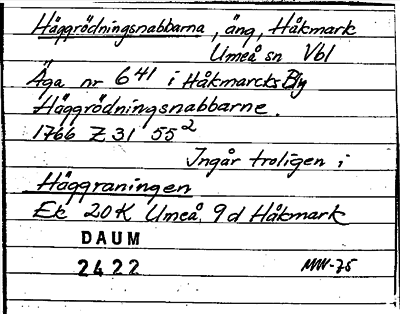 Häggrödningsnabbarna, äng, Håkmark
Umeå sn Vbl
Äga nr 641 i Håkmarcks By
Häggrödningsnabbarne.
1766 Z 31 55²
Ingår troligen i
Häggraningen
Ek 20K Umeå 9d Håkmark
DAUM
2422 MW-75